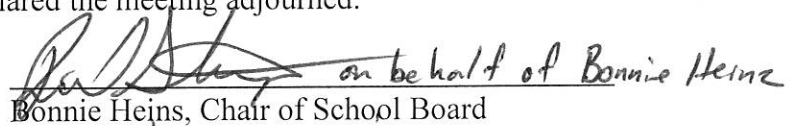 the meeting adjourned.
on behalf of Bonnie Heinz
Bonnie Heins, Chair of School Board